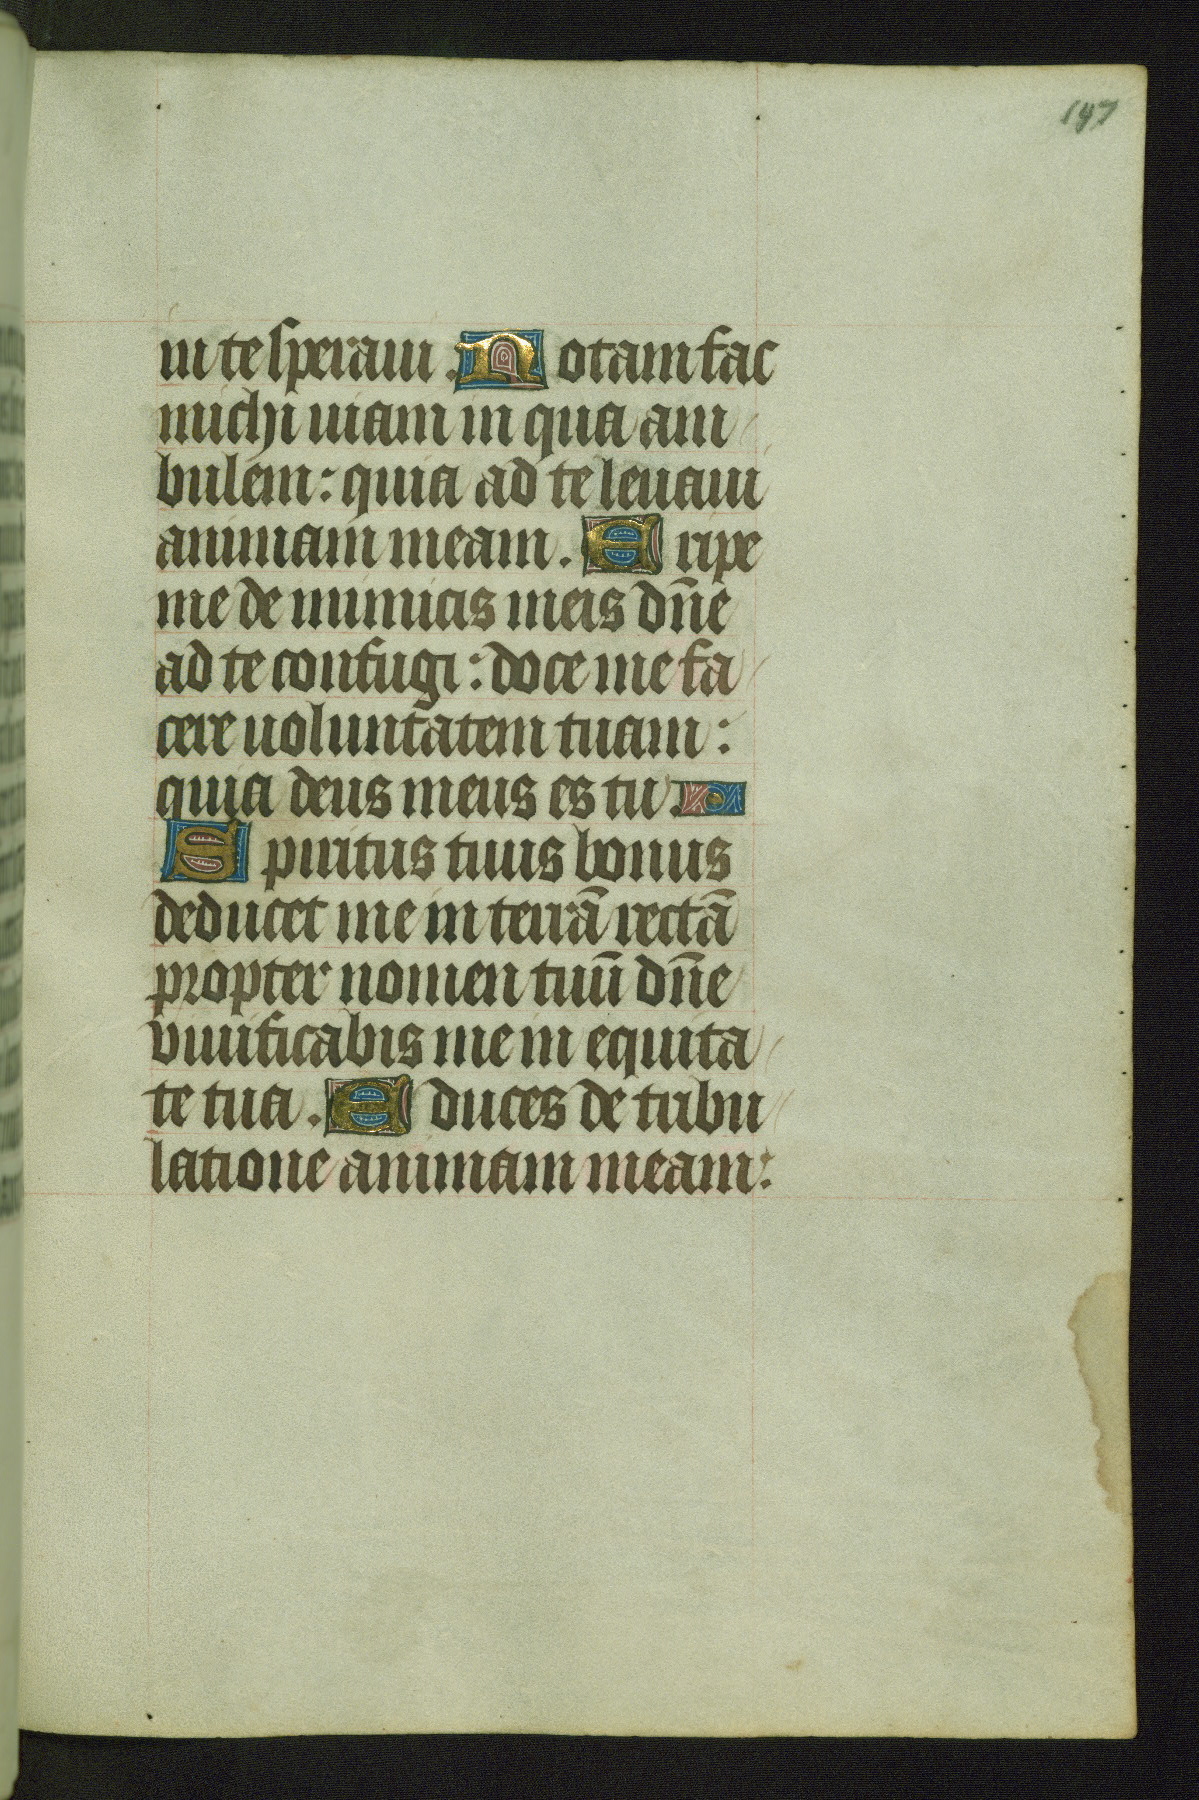 147
in te speraui. Notam fac
michi uiam in qua am
bulem: quia ad te leuaui
animam meam. Eripe
me de inimicis meis dn̄e
ad te confugi: doce me fa
cere uoluntatem tuam:
quia deus meus es tu.
Spiritus tuus bonus
deducet me in terrā rectā
propter nomen tuū dn̄e
viuificabis me in equita
te tua. Educes de tribu
latione animam meam: